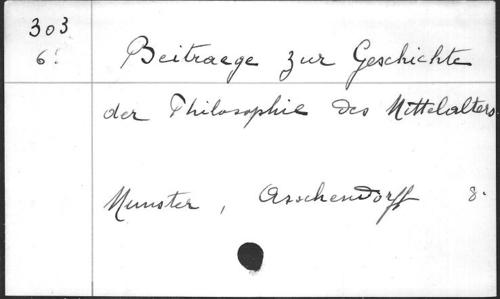 303
6!
Beitraege zur Geschichte
der Philosophie des Mittelalters
Munster, Asschendorff 8.